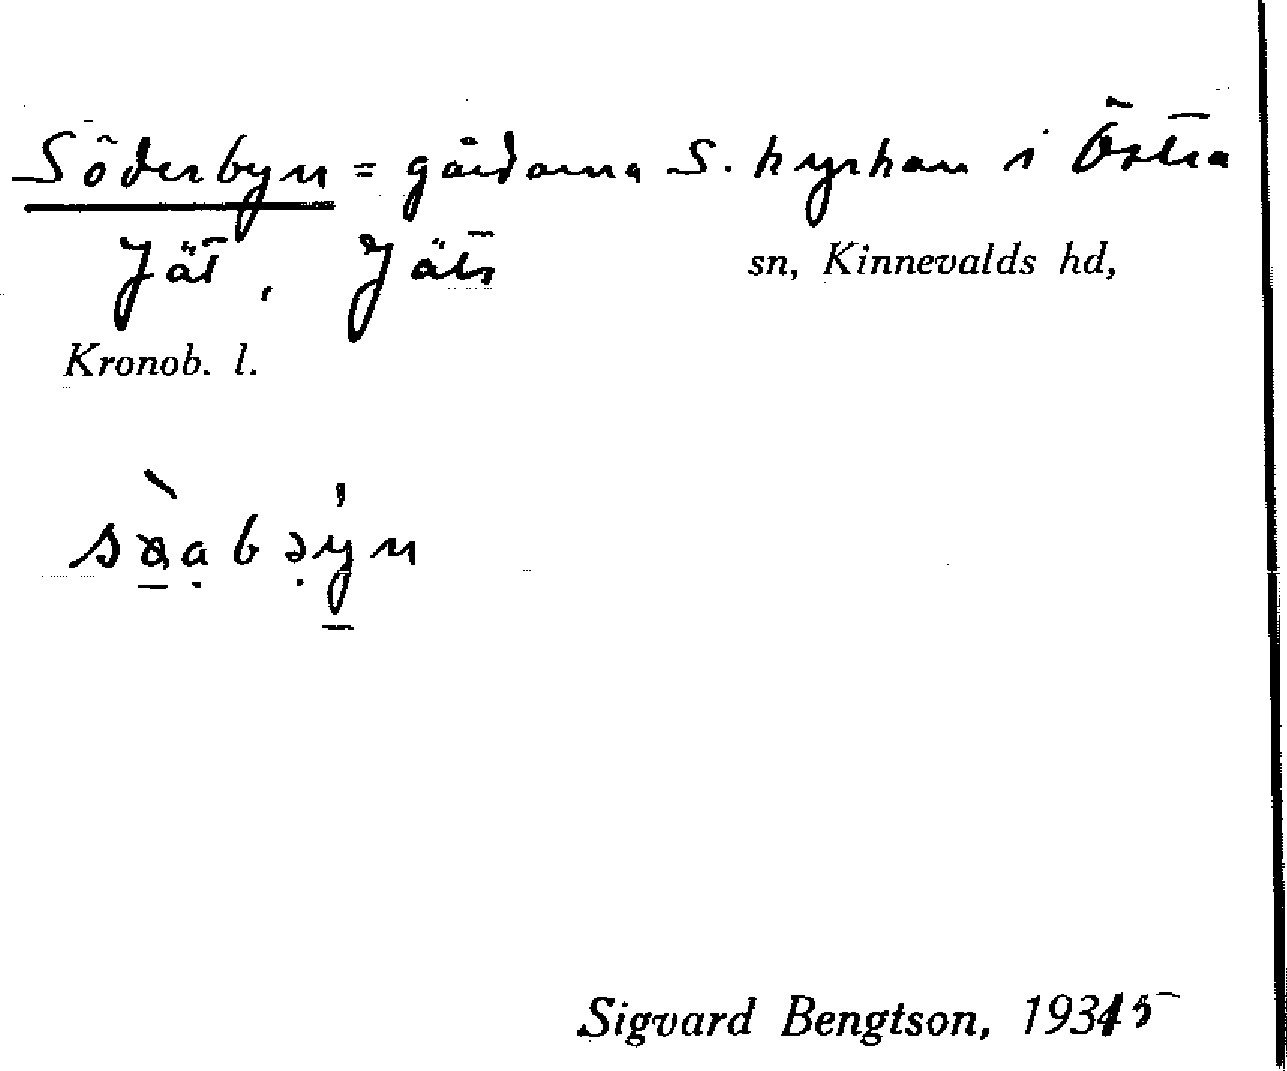 Söderbyn = gårdarna S. kyrkan i Östra
Jät, Jäts sn, Kinnevalds hd,
Kronob. l.
Sigvard Bengtson, 1935